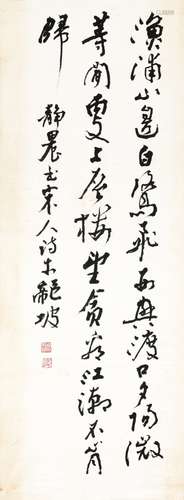 漁浦山邊白鷺飛西興渡口夕陽微
等閒更上層樓望貪看江潮不肯
歸
靜農書宋人詩于龍坡